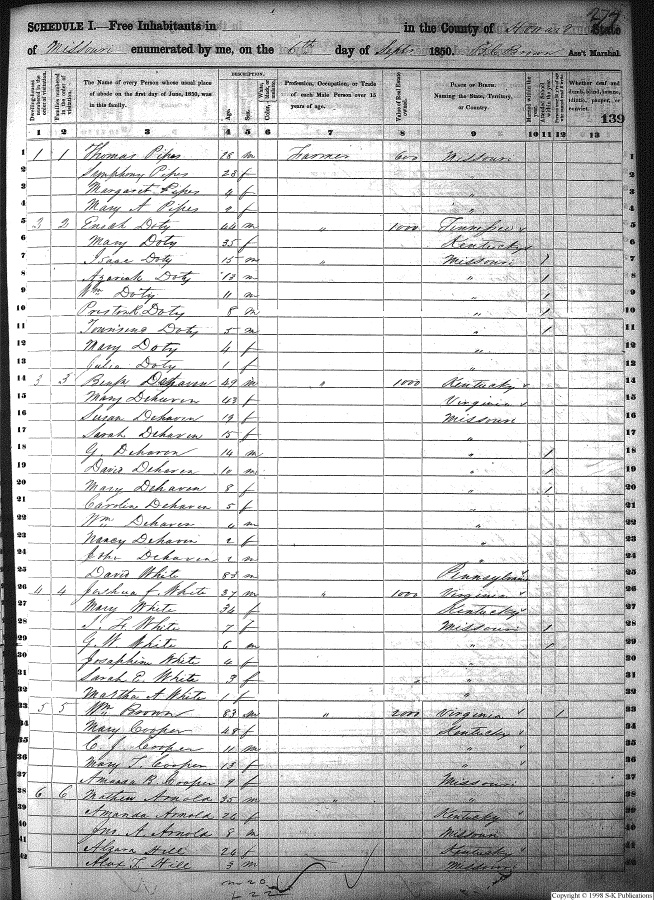 274
SCHEDULE I.—Free Inhabitants in in the County of Howard State
of Missouri enumerated by me, on the 6th day of Sept 1850. Brown Ass't Marshal.
139
Dwelling-houses numbered in the order of visitation.
Families numbered in the order of visitation.
The Name of every Person whose usual place of abode on the first day of June, 1850, was in this family.
DESCRIPTION.
Age.
Sex.
White, black, or mulatto.
Color,
Profession, Occupation, or Trade of each Male Person over 15 years of age.
Value of Real Estate owned.
PLACE OF BIRTH. Naming the State, Territory, or Country.
Married within the year.
Whether deaf and dumb, blind, insane, idiotic, pauper, or convict.
1 2 3 4 5 6 7 8 9 10 11 12 13
1 1 1 Thomas Pipes 28 m Farmer 600 Missouri 1
2 Symphony Pipes 23 f 2
3 Margaret Pipes 4 f 3
4 Mary A Pipes 2 f " 4
5 2 2 Enoch Doty 44 m " 1000 Tennessee 5
6 Mary Doty 35 f Kentucky 6
7 Isaac Doty 15 m " Missouri 1 7
8 Azariah Doty 13 m " 1 8
9 Wm Doty 11 m " 1 9
10 Preston R Doty 8 m " 1 10
11 Townsend Doty 5 m 1 11
12 Mary Doty 4 f " 12
13 Julia Doty 1 f " 13
14 3 3 Benjn Dehaven 49 m " 1000 Kentucky 14
15 Mary Dehaven 43 f Virginia 15
16 Susan Dehaven 19 f Missouri 16
17 Sarah Dehaven 15 f " 17
18 G. Dehaven 14 m " 1 18
19 David Dehaven 10 m " 1 19
20 Mary Dehaven 8 f " 1 20
21 Caroline Dehaven 5 f " 21
22 Wm Dehaven 4 m " 22
23 Nancy Dehaven 2 f " 23
24 John Dehaven 2 m " 24
25 David White 83 m Pennsylvania 25
26 4 4 Joshua f. White 37 m " 1000 Virginia 26
27 Mary White 34 f Kentucky 27
28 White 7 f Missouri 1 28
29 G. W. White 6 m " 1 29
30 Josephine White 4 f " 30
31 Sarah E. White 3 f " 31
32 Martha A White 1 f " 32
33 5 5 Wm Brown 83 m " 2000 Virginia 1 33
34 Mary Cooper 48 f Kentucky 34
35 C. J. Cooper 11 m " 35
36 Mary T. Cooper 13 f " 36
37 Amanda B. Cooper 9 f Missouri 37
38 6 6 Mathew Arnold 35 m " " 38
39 Amanda Arnold 26 f Kentucky 39
40 Jno. A. Arnold 8 m Missouri 40
41 Hill 26 f Kentucky 41
42 Alex T. Hill 3 m Missouri 42
m 20
f 22
Copyright © 1998 S-K Publications